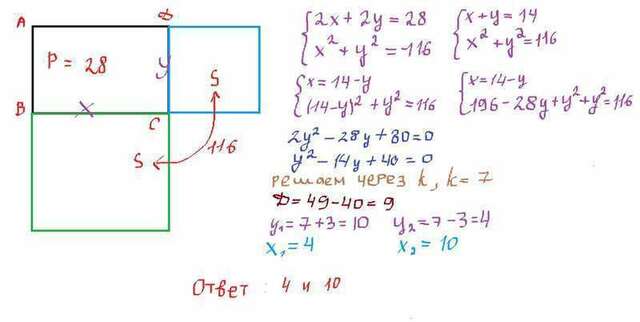 A D
P = 28
y
S
x
B C
S 116
{2x + 2y = 28
x² + y² = -116
{x + y = 14
x² + y² = 116
{x = 14 - y
(14-y)² + y² = 116
{x = 14 - y
196 - 28y + y² + y² = 116
2y² - 28y + 80 = 0
y² - 14y + 40 = 0
решаем через k, k = 7
D = 49 - 40 = 9
y₁ = 7 + 3 = 10 y₂ = 7 - 3 = 4
x₁ = 4 x₂ = 10
Ответ : 4 и 10